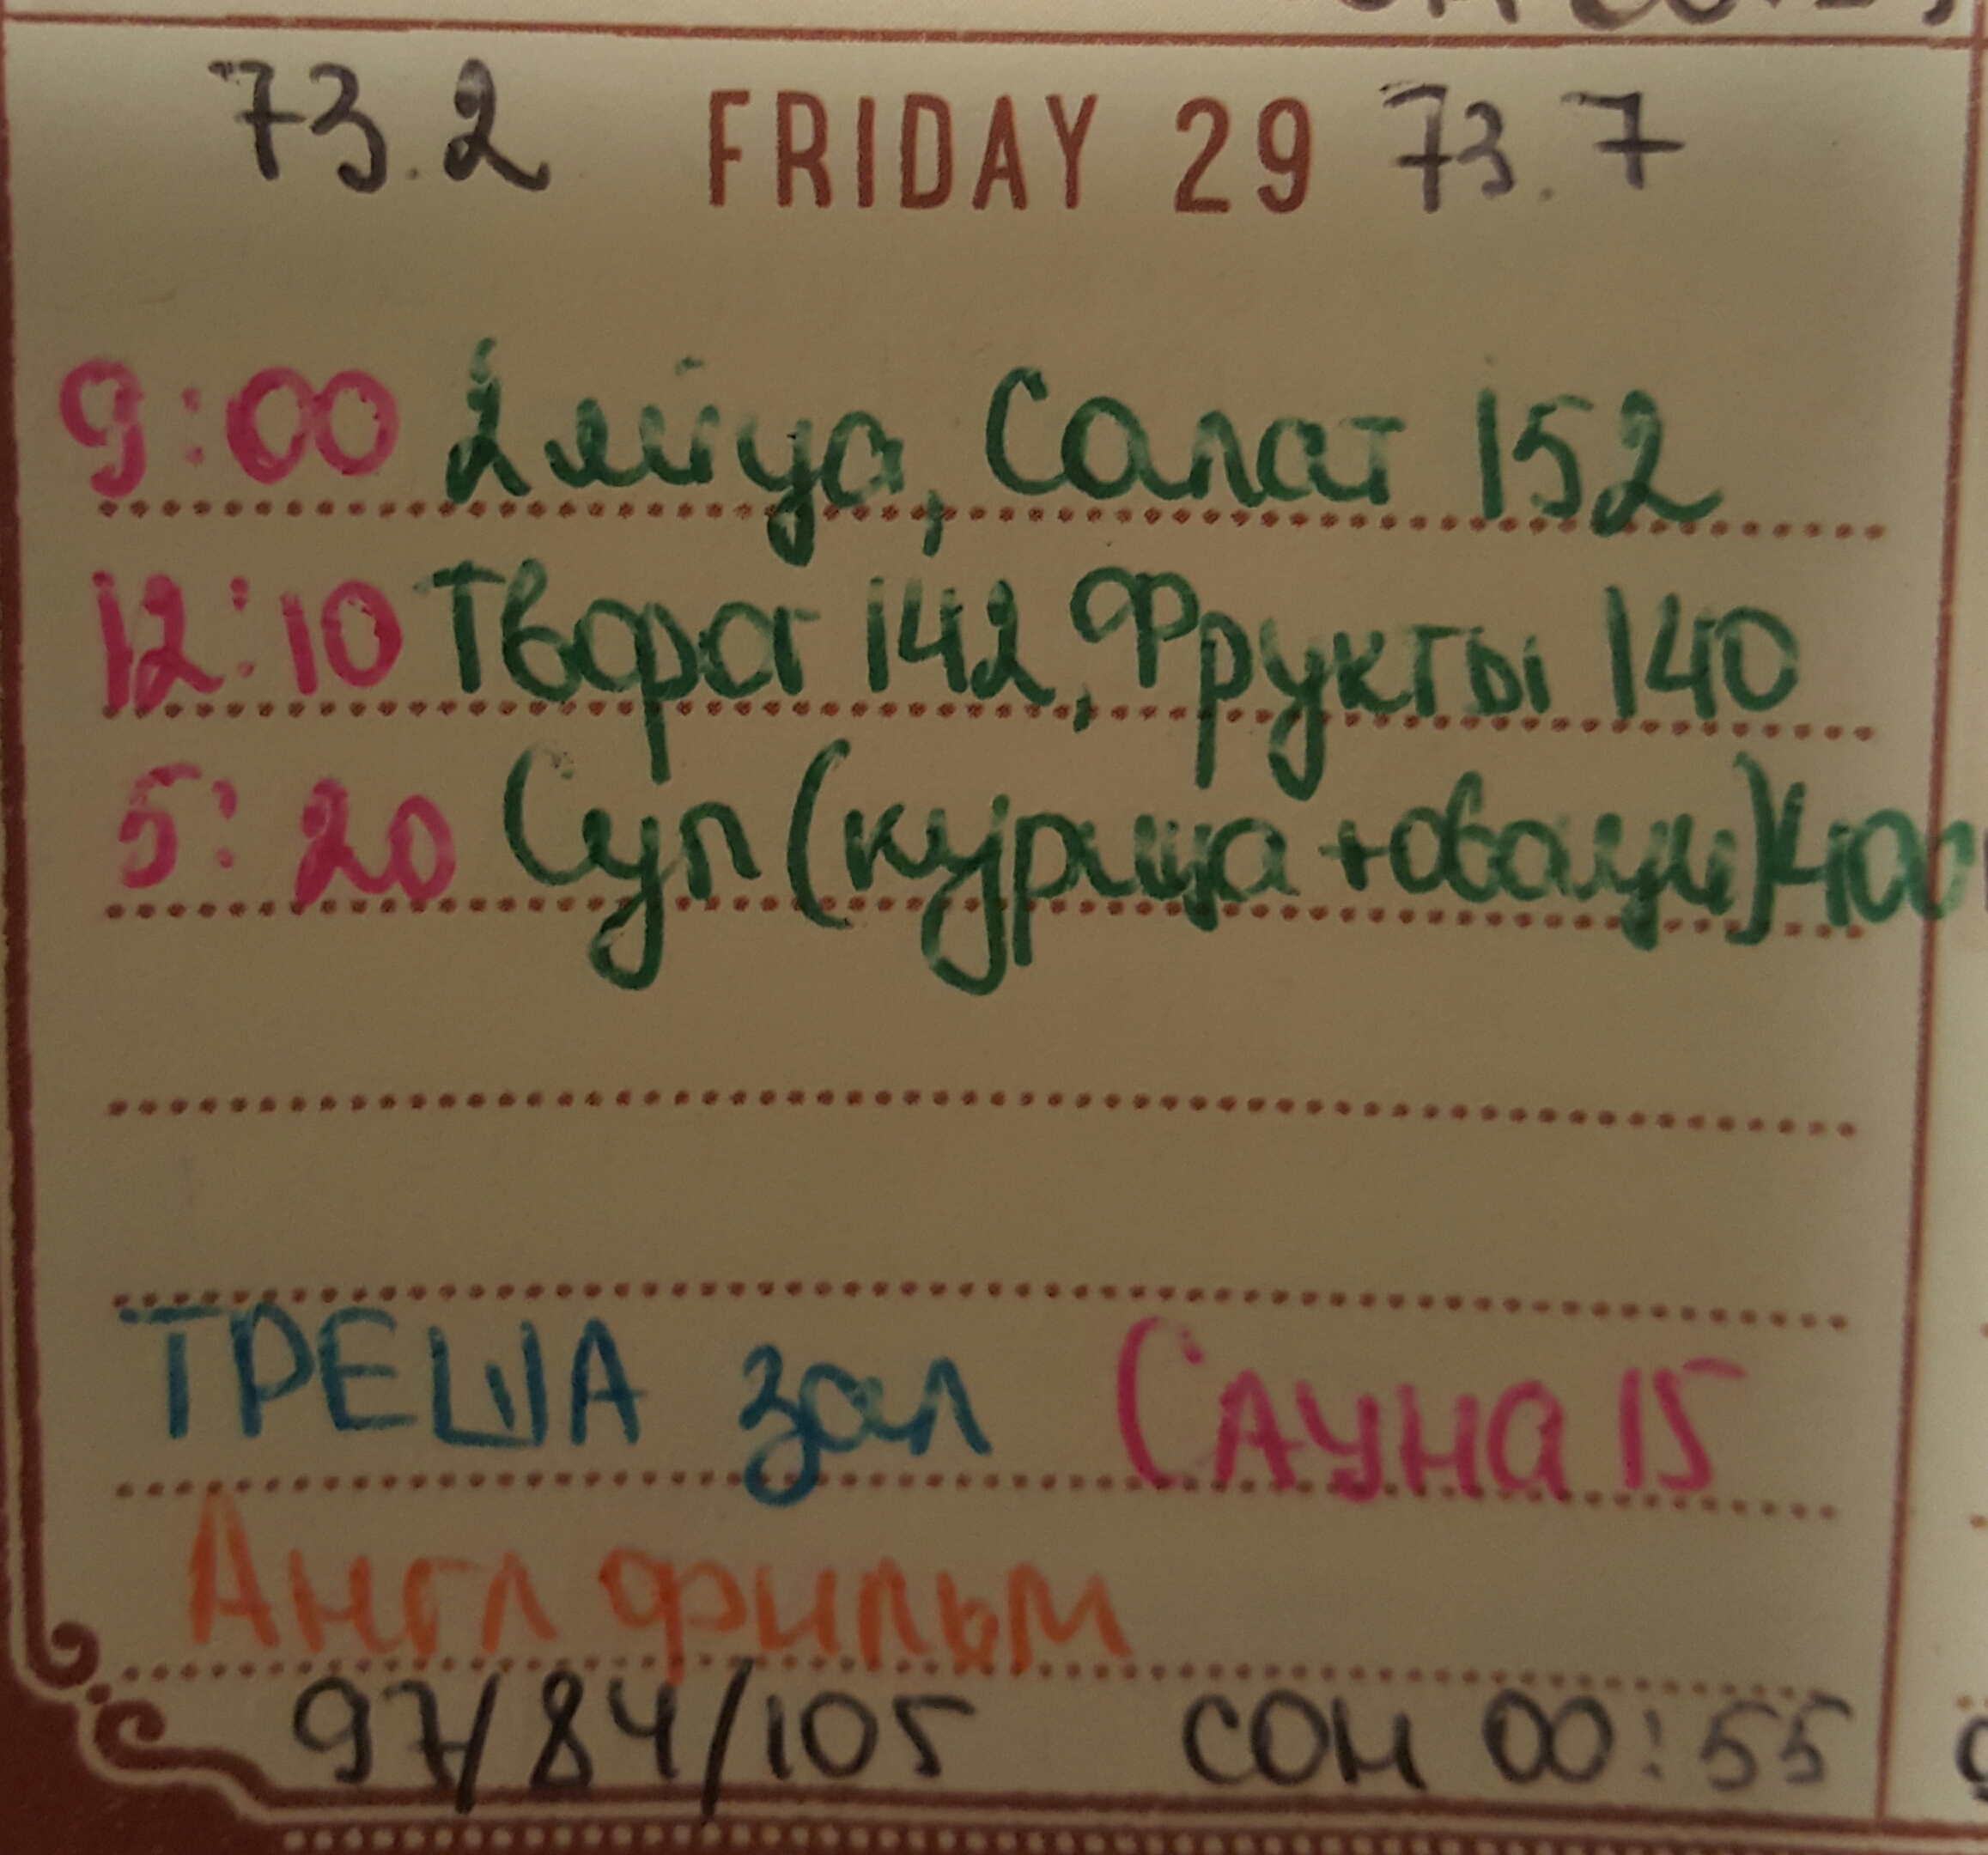 73.2 FRIDAY 29 73.7
9:00 2 яйца, Салат 152
12:10 Творог 142, Фрукты 140
5:20 Суп (курица + овощи) 400
ТРЕША зал Сауна 15
Англ фильм
97/84/105 сон 00:55